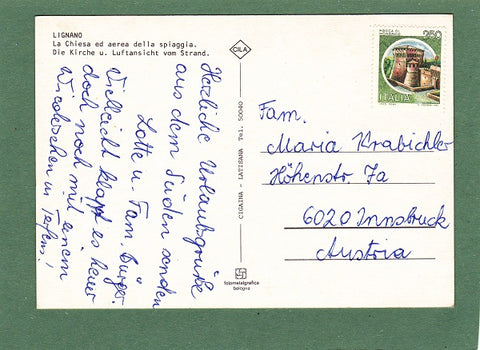 LIGNANO
La Chiesa ed aerea della spiaggia.
Die Kirche u. Luftansicht vom Strand.
Herzliche Urlaubsgrüße
aus dem Süden senden
Lotte u. Fam. Burger.
Vielleicht klappt es heuer
doch noch mit einem
Wiedersehen in Telfens!
CILA
CICAINA - LATISANA Tel. 50040
fotometalgrafica
bologna
250
ITALIA
Fam.
Maria Krabichler
Höhenstr 7a
6020 Innsbruck
Austria